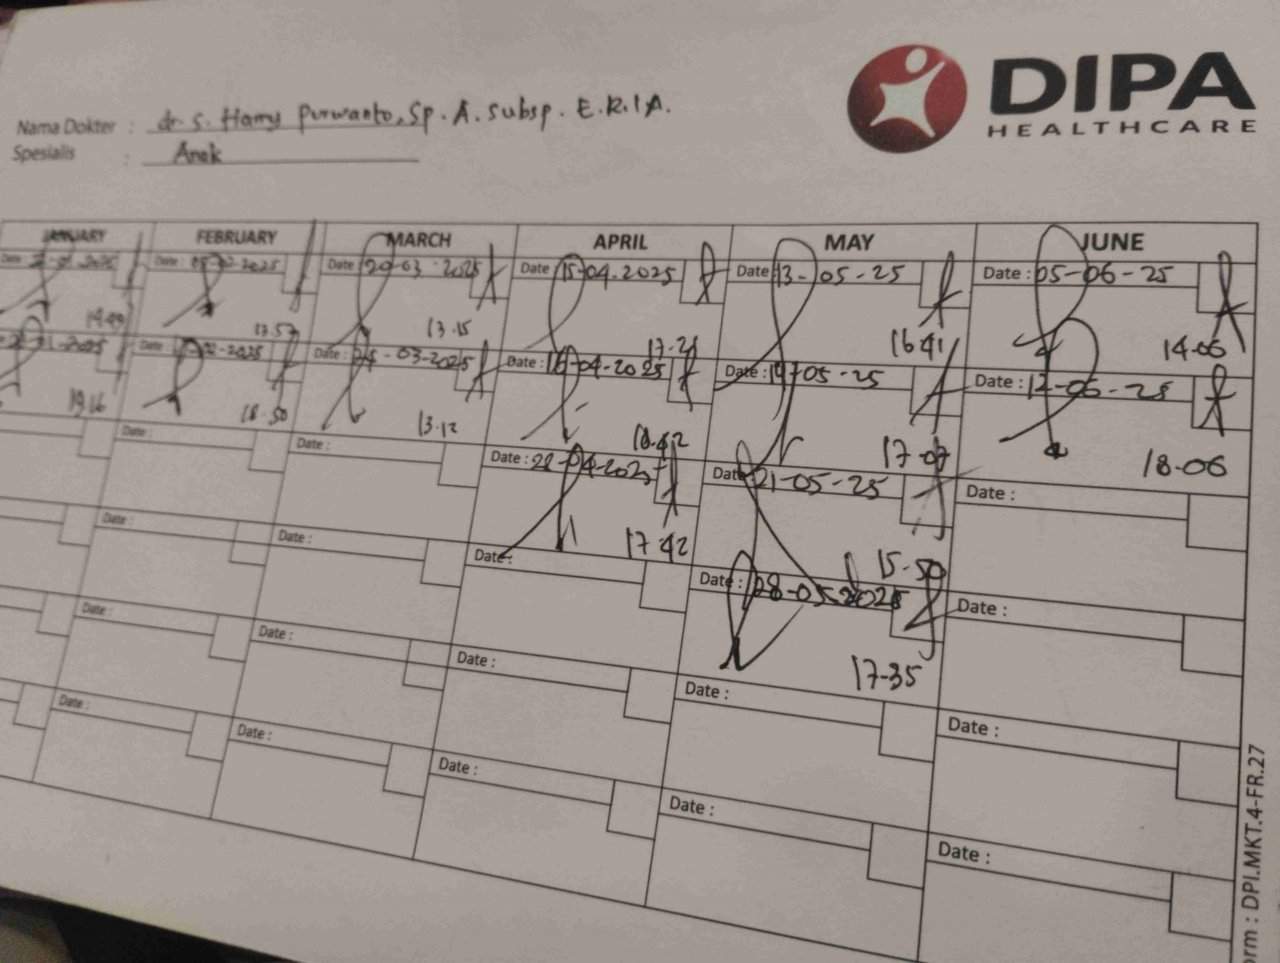 DIPA
HEALTHCARE
Nama Dokter : dr. S. Harry Purwanto, Sp. A. Subsp. E.R.I.A.
Spesialis : Anak
JANUARY FEBRUARY MARCH APRIL MAY JUNE
Date : Date : Date : 20-03-2025 Date : 15-04.2025 Date : 13-05-25 Date : 05-06-25
17.57 13.15 17-21 16 41 14.06
Date : -02-2025 Date : 24-03-2025 Date : 16-04-2025 Date : 19-05-25 Date : 12-06-25
19.16 18.50 13.12 18.42 17-07 18-06
Date : Date : Date : 22-04-2025 Date : 21-05-25 Date :
17.42 15-50
Date : Date : Date : Date : 28-05-2025 Date :
17-35
Date : Date : Date : Date : Date :
Date : Date : Date : Date : Date :
orm : DPI.MKT.4-FR.27